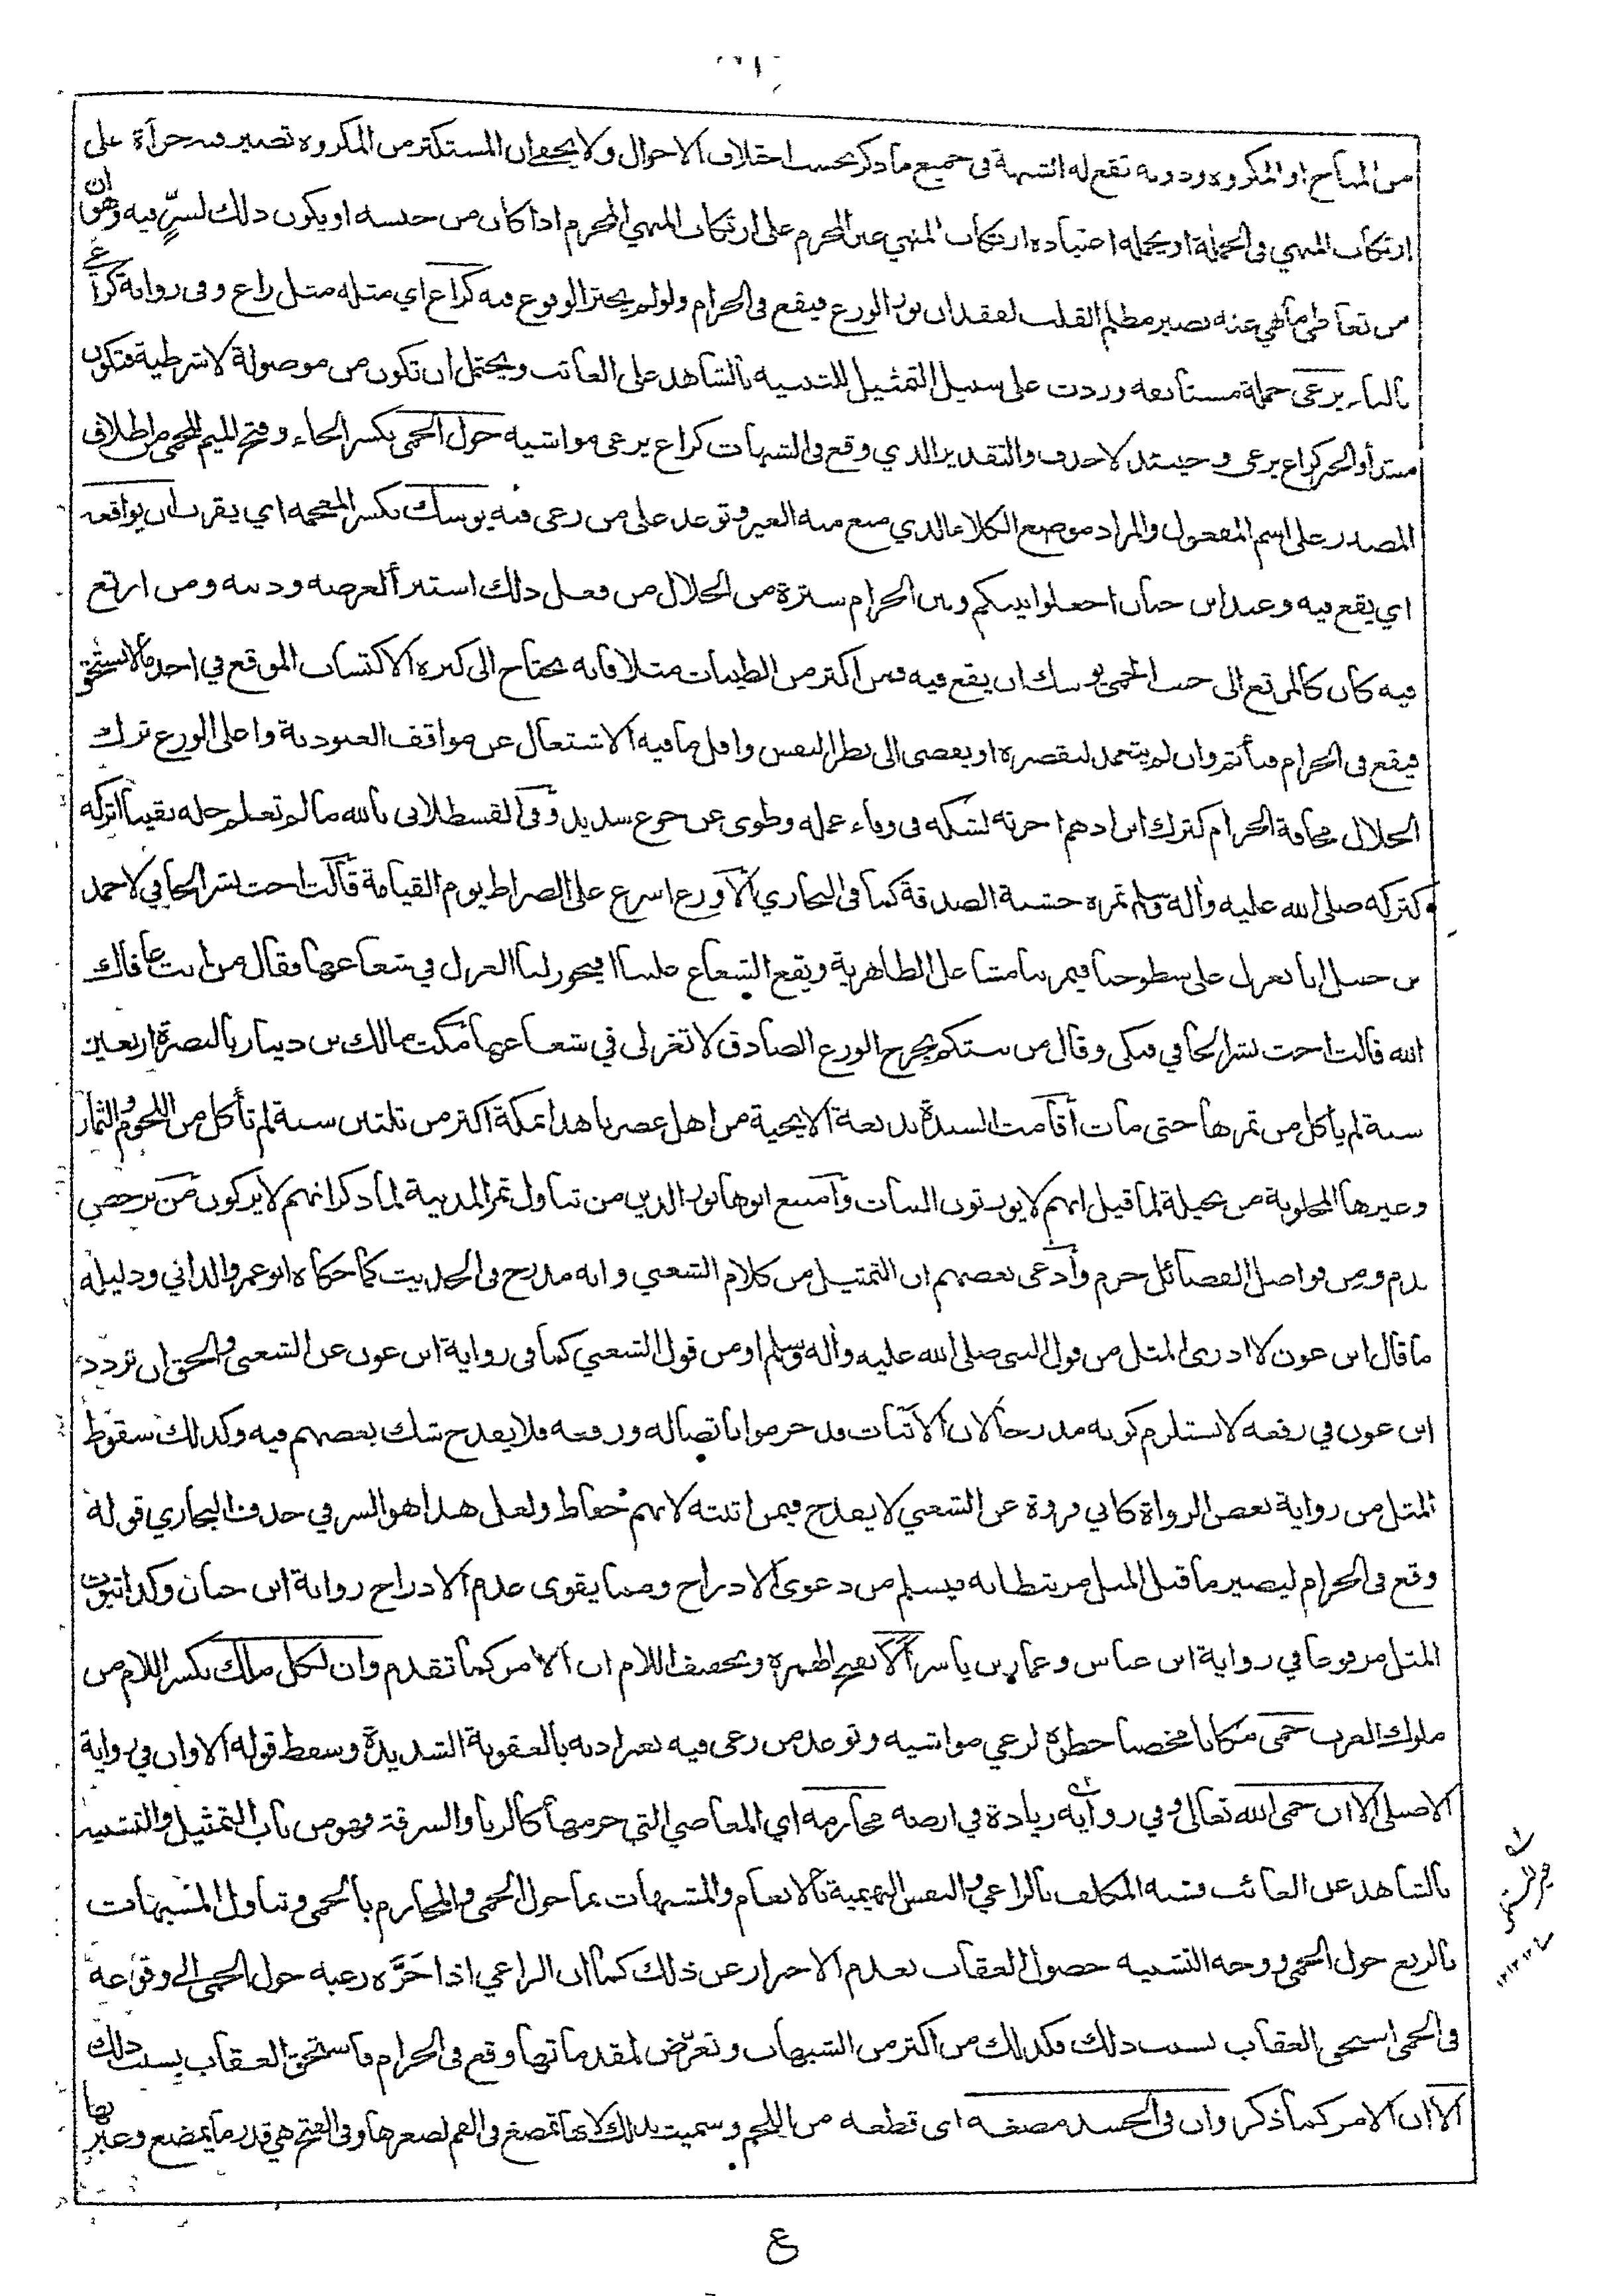 من المباح او المكروه ودونه تقع له الشبهة في جميع ما ذكر بحسب اختلاف الاحوال ولا يخفى ان المستكثر من المكروه تصير فيه جرأة على
ارتكاب المنهي في الجملة او يحمله اعتياده ارتكاب المنهي غير المحرم على ارتكاب المنهي المحرم اذا كان من جنسه او يكون ذلك لسرٍّ فيه وهو ان
من تعاطى ما نهي عنه يصير مظلم القلب لفقدان نور الورع فيقع في الحرام ولو لم يختر الوقوع فيه كراع اي مثله مثل راع وفي رواية كراعي
بالياء يرعى جملة مستأنفة وردت على سبيل التمثيل للتنبيه بالشاهد على الغائب ويحتمل ان تكون من موصولة لا شرطية فتكون
مبتدأ والخبر كراع يرعى وحينئذ لا حذف والتقدير الذي وقع في الشبهات كراع يرعى مواشيه حول الحمى بكسر الحاء وفتح الميم المحمى من اطلاق
المصدر على اسم المفعول والمراد موضع الكلاء الذي منع منه الغير وتوعد على من رعى فيه يوشك بكسر المعجمة اي يقرب ان يواقعه
اي يقع فيه وعند ابن حبان اجعلوا بينكم وبين الحرام سترة من الحلال من فعل ذلك استبرأ لعرضه ودينه ومن ارتع
فيه كان كالمرتع الى جنب الحمى يوشك ان يقع فيه فمن اكثر من الطيبات مثلا فانه يحتاج الى كثرة الاكتساب الموقع في اخذ ما لا يستحق
فيقع في الحرام فيأثم وان لم يتعمد لتقصيره او يفضى الى بطر النفس واقل ما فيه الاشتغال عن مواقف العبودية واعلى الورع ترك
الحلال مخافة الحرام كترك ابن ادهم اجرته لشكه في وفاء عمله وطوى عن جوع شديد وفي القسطلاني بالله ما لم تعلم حله يقينا اتركه
كتركه صلى الله عليه وآله وسلم تمرة خشية الصدقة كما في البخاري الاورع اسرع على الصراط يوم القيامة قالت اخت بشر الحافي لاحمد
بن حنبل انا نغزل على سطوحنا فيمر بنا مشاعل الظاهرية ويقع الشعاع علينا افيجوز لنا الغزل في شعاعها فقال من انت عافاك
الله قالت اخت بشر الحافي فبكى وقال من بيتكم يخرج الورع الصادق لا تغزلي في شعاعها مكث مالك بن دينار بالبصرة اربعين
سنة لم يأكل من تمرها حتى مات أقامت السيدة بديعة الايجية من اهل عصرنا هذا بمكة اكثر من ثلثين سنة لم تأكل من اللحوم والثمار
وغيرها المجلوبة من بجيلة لما قيل انهم لا يورثون البنات وامتنع ابوها نور الدين من تناول تمر المدينة لما ذكر انهم لا يزكون فمن يرخص
يندم ومن فواضل الفضائل حرم وأدعى بعضهم ان التمثيل من كلام الشعبي وانه مدرج في الحديث كما حكاه ابو عمرو الداني ودليله
ما قال ابن عون لا ادرى المثل من قول النبي صلى الله عليه وآله وسلم او من قول الشعبي كما في رواية ابن عون عن الشعبي والحق ان تردد
ابن عون في رفعه لا يستلزم كونه مدرجا لان الاثبات قد جزموا باتصاله ورفعه فلا يقدح شك بعضهم فيه وكذلك سقوط
المثل من رواية بعض الرواة كابي فروة عن الشعبي لا يقدح فيمن اثبته لانهم حفاظ ولعل هذا هو السر في حذف البخاري قوله
وقع في الحرام ليصير ما قبل المثل مرتبطا به فيسلم من دعوى الادراج ومما يقوى عدم الادراج رواية ابن حبان وكذا ثبوت
المثل مرفوعا في رواية ابن عباس وعمار بن ياسر ألا بفتح الهمزة وتخفيف اللام ان الامر كما تقدم وان لكل ملك بكسر اللام من
ملوك العرب حمى مكانا مخصبا حظره لرعي مواشيه وتوعد من رعى فيه بغير اذنه بالعقوبة الشديدة وسقط قوله الا وان في رواية
الاصيلى الا ان حمى الله تعالى وفي رواية زيادة في ارضه محارمه اي المعاصي التي حرمها كالربا والسرقة فهو من باب التمثيل والتشبيه
بالشاهد عن الغائب فشبه المكلف بالراعي والنفس البهيمية بالانعام والمشبهات بما حول الحمى والمحارم بالحمى وتناول المشبهات
بالرتع حول الحمى ووجه التشبيه حصول العقاب بعدم الاحتراز عن ذلك كما ان الراعي اذا جَرَّه رعيه حول الحمى الى وقوعه
في الحمى استحق العقاب بسبب ذلك فكذلك من اكثر من الشبهات وتعرّض لمقدماتها وقع في الحرام فاستحق العقاب بسبب ذلك
الا ان الامر كما ذكر وان في الجسد مضغه اى قطعه من اللحم وسميت بذلك لانها تمضغ في الفم لصغرها وفى الفتح هي قدر ما يمضع وعبّر بها
ع